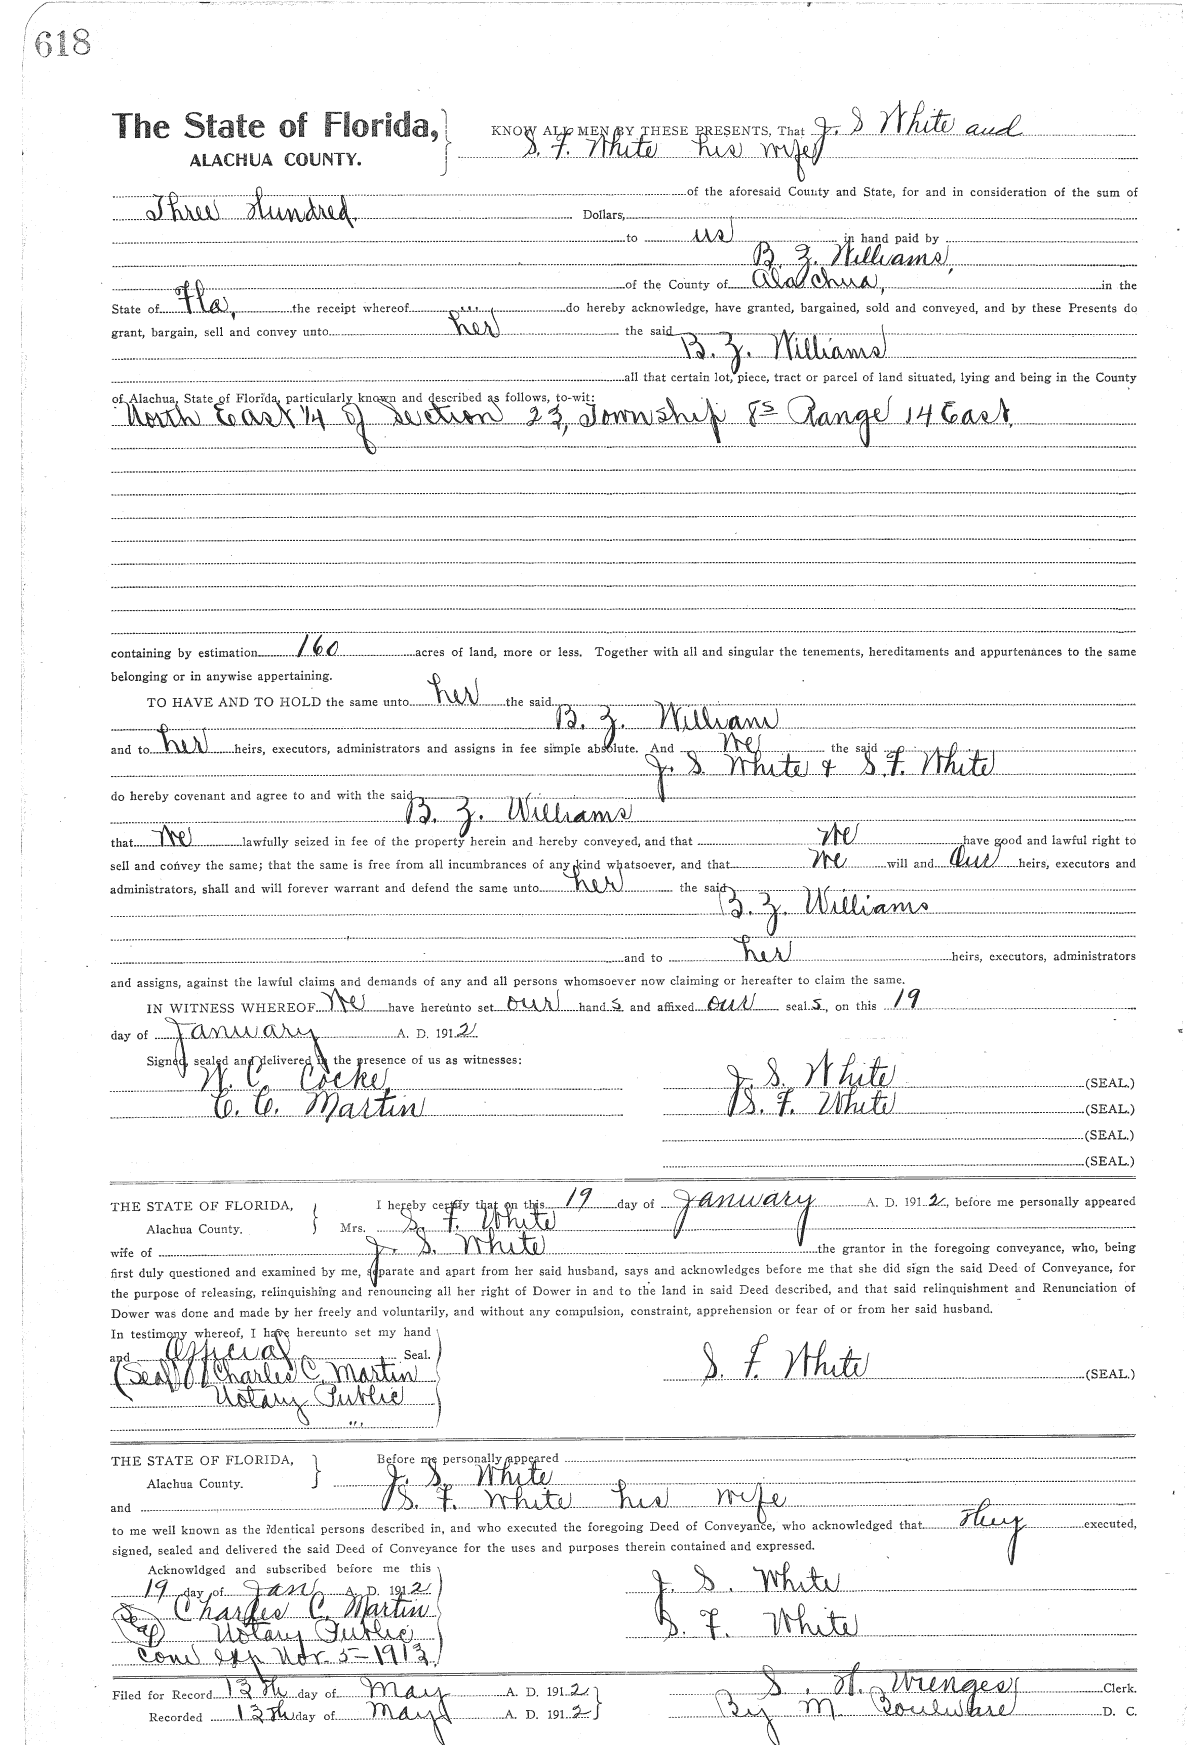 618
The State of Florida, KNOW ALL MEN BY THESE PRESENTS, That J. S White and
ALACHUA COUNTY. S. F. White his wife
of the aforesaid County and State, for and in consideration of the sum of
Three Hundred Dollars,
to us in hand paid by
B. Z. Williams,
of the County of Alachua, in the
State of Fla, the receipt whereof do hereby acknowledge, have granted, bargained, sold and conveyed, and by these Presents do
grant, bargain, sell and convey unto her the said
B. Z. Williams
all that certain lot, piece, tract or parcel of land situated, lying and being in the County
of Alachua, State of Florida, particularly known and described as follows, to-wit:
North East 1/4 of Section 23, Township 8s Range 14 East,
containing by estimation 160 acres of land, more or less. Together with all and singular the tenements, hereditaments and appurtenances to the same
belonging or in anywise appertaining.
TO HAVE AND TO HOLD the same unto her the said
B. Z. William
and to her heirs, executors, administrators and assigns in fee simple absolute. And We the said
J. S. White & S. F. White
do hereby covenant and agree to and with the said
B. Z. Williams
that We lawfully seized in fee of the property herein and hereby conveyed, and that We have good and lawful right to
sell and convey the same; that the same is free from all incumbrances of any kind whatsoever, and that We will and Our heirs, executors and
administrators, shall and will forever warrant and defend the same unto her the said
B. Z. Williams
and to her heirs, executors, administrators
and assigns, against the lawful claims and demands of any and all persons whomsoever now claiming or hereafter to claim the same.
IN WITNESS WHEREOF We have hereunto set our hand s and affixed our seal s, on this 19
day of January A. D. 191 2
Signed, sealed and delivered in the presence of us as witnesses:
W. C. Cocke J. S. White (SEAL.)
C. C. Martin S. F. White (SEAL.)
(SEAL.)
(SEAL.)
THE STATE OF FLORIDA, I hereby certify that on this 19 day of January A. D. 191 2, before me personally appeared
Alachua County. Mrs. S. F. White
wife of J. S. White the grantor in the foregoing conveyance, who, being
first duly questioned and examined by me, separate and apart from her said husband, says and acknowledges before me that she did sign the said Deed of Conveyance, for
the purpose of releasing, relinquishing and renouncing all her right of Dower in and to the land in said Deed described, and that said relinquishment and Renunciation of
Dower was done and made by her freely and voluntarily, and without any compulsion, constraint, apprehension or fear of or from her said husband.
In testimony whereof, I have hereunto set my hand
and Official Seal. S. F. White (SEAL.)
(Seal) Charles C. Martin
Notary Public
THE STATE OF FLORIDA, Before me personally appeared
Alachua County. J. S. White
and S. F. White his wife
to me well known as the identical persons described in, and who executed the foregoing Deed of Conveyance, who acknowledged that they executed,
signed, sealed and delivered the said Deed of Conveyance for the uses and purposes therein contained and expressed.
Acknowldged and subscribed before me this
19 day of Jan A. D. 191 2 J. S. White
Seal Charles C. Martin S. F. White
Notary Public
Com exp Nov. 5 - 1913
Filed for Record 13th day of May A. D. 191 2 S. H. Wienges Clerk.
Recorded 13th day of May A. D. 191 2 By M. Boulware D. C.